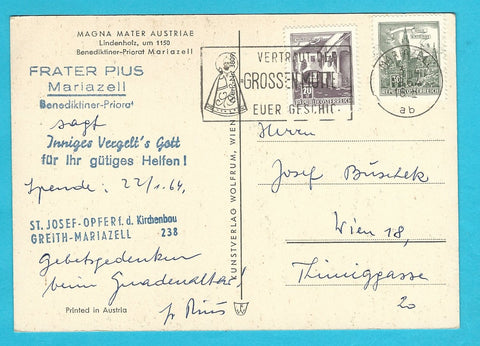 MAGNA MATER AUSTRIAE
Lindenholz, um 1150
Benediktiner-Priorat Mariazell
FRATER PIUS
Mariazell
Benediktiner-Priorat
sagt
Inniges Vergelt's Gott
für Ihr gütiges Helfen!
Spende: 22/1.64,
ST. JOSEF-OPFER f. d. Kirchenbau
GREITH-MARIAZELL 238
Gebetsgedenken
beim Gnadenaltar!
fr Pius
Printed in Austria
KUNSTVERLAG WOLFRUM, WIEN
VERTRAUT DER
GROSSEN MUTTER
EUER GESCHICK
20
REPUBLIK ÖSTERREICH
ab
Herrn
Josef Büschek
Wien 18,
Thimiggasse
20